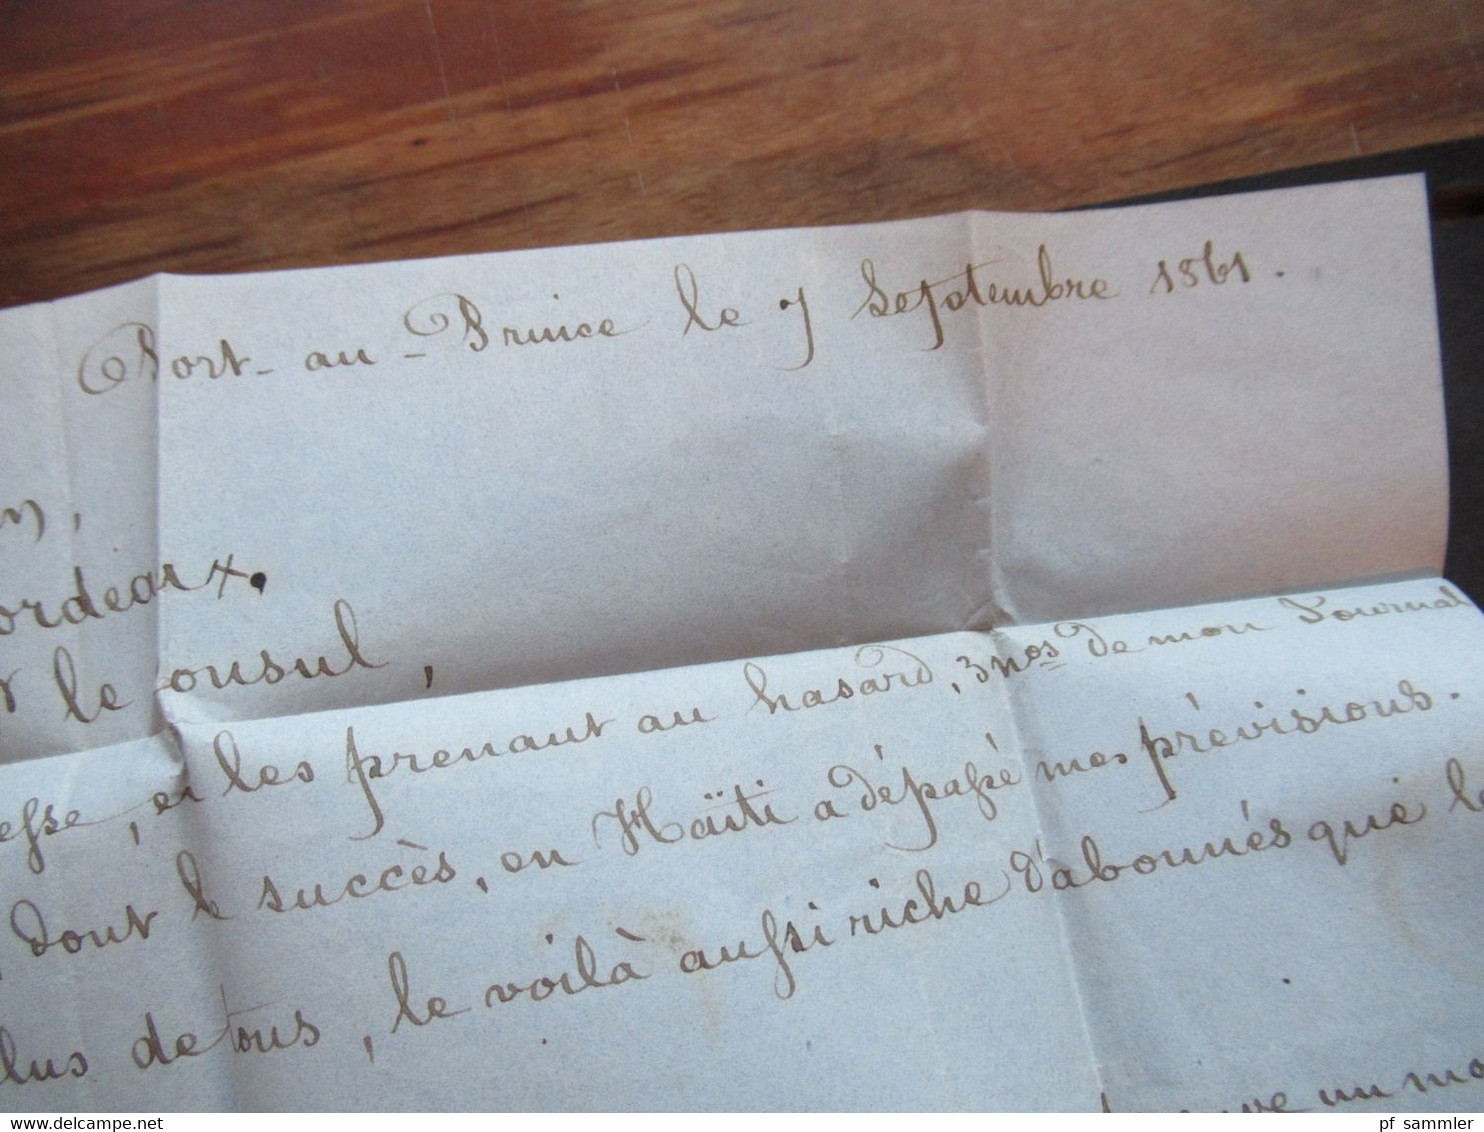 Port-au-Prince le 7 Septembre 1861.
ordeaux.
le Consul,
esse, en les prenant au hasard, 3 nos de mon Journal
dont le succès, en Haïti a dépassé mes prévisions.
lus de tous, le voilà aussi riche d'abonnés que le
un mo
pf sammler
delcampe.net